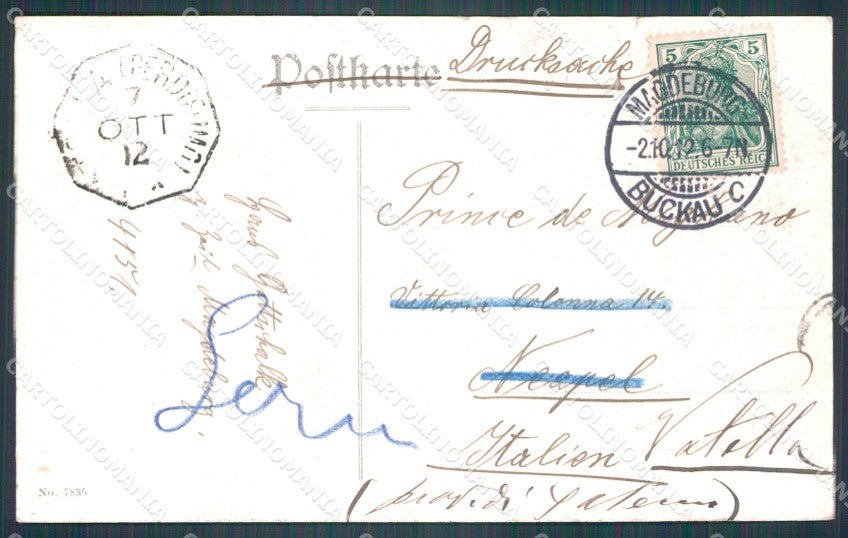 Postkarte Drucksache
5 5
DEUTSCHES REICH
MAGDEBURG
-2.10.12.6-7N.
BUCKAU C
7
OTT
12
Prince de
Vittoria Colonna 14.
Neapel
Italien Vatolla
(prov. di Salerno)
Hans Gottschalk
Magdeburg.
4151
No. 7835
CARTOLINOMANIA